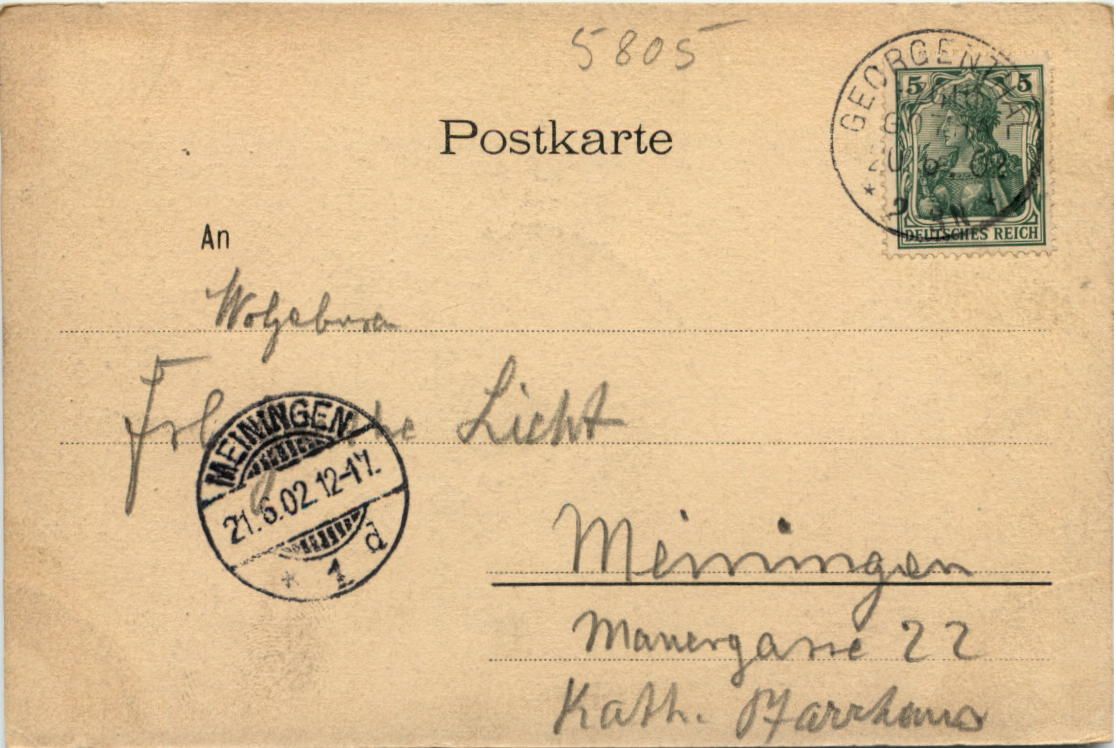 5805
GEORGENTHAL
20 6 02
2-3N
5 5
DEUTSCHES REICH
Postkarte
An
Licht
MEININGEN
21.6.02 12-1V.
* 1 d
Meiningen
Mauergasse 22
Kath. Pfarrhaus